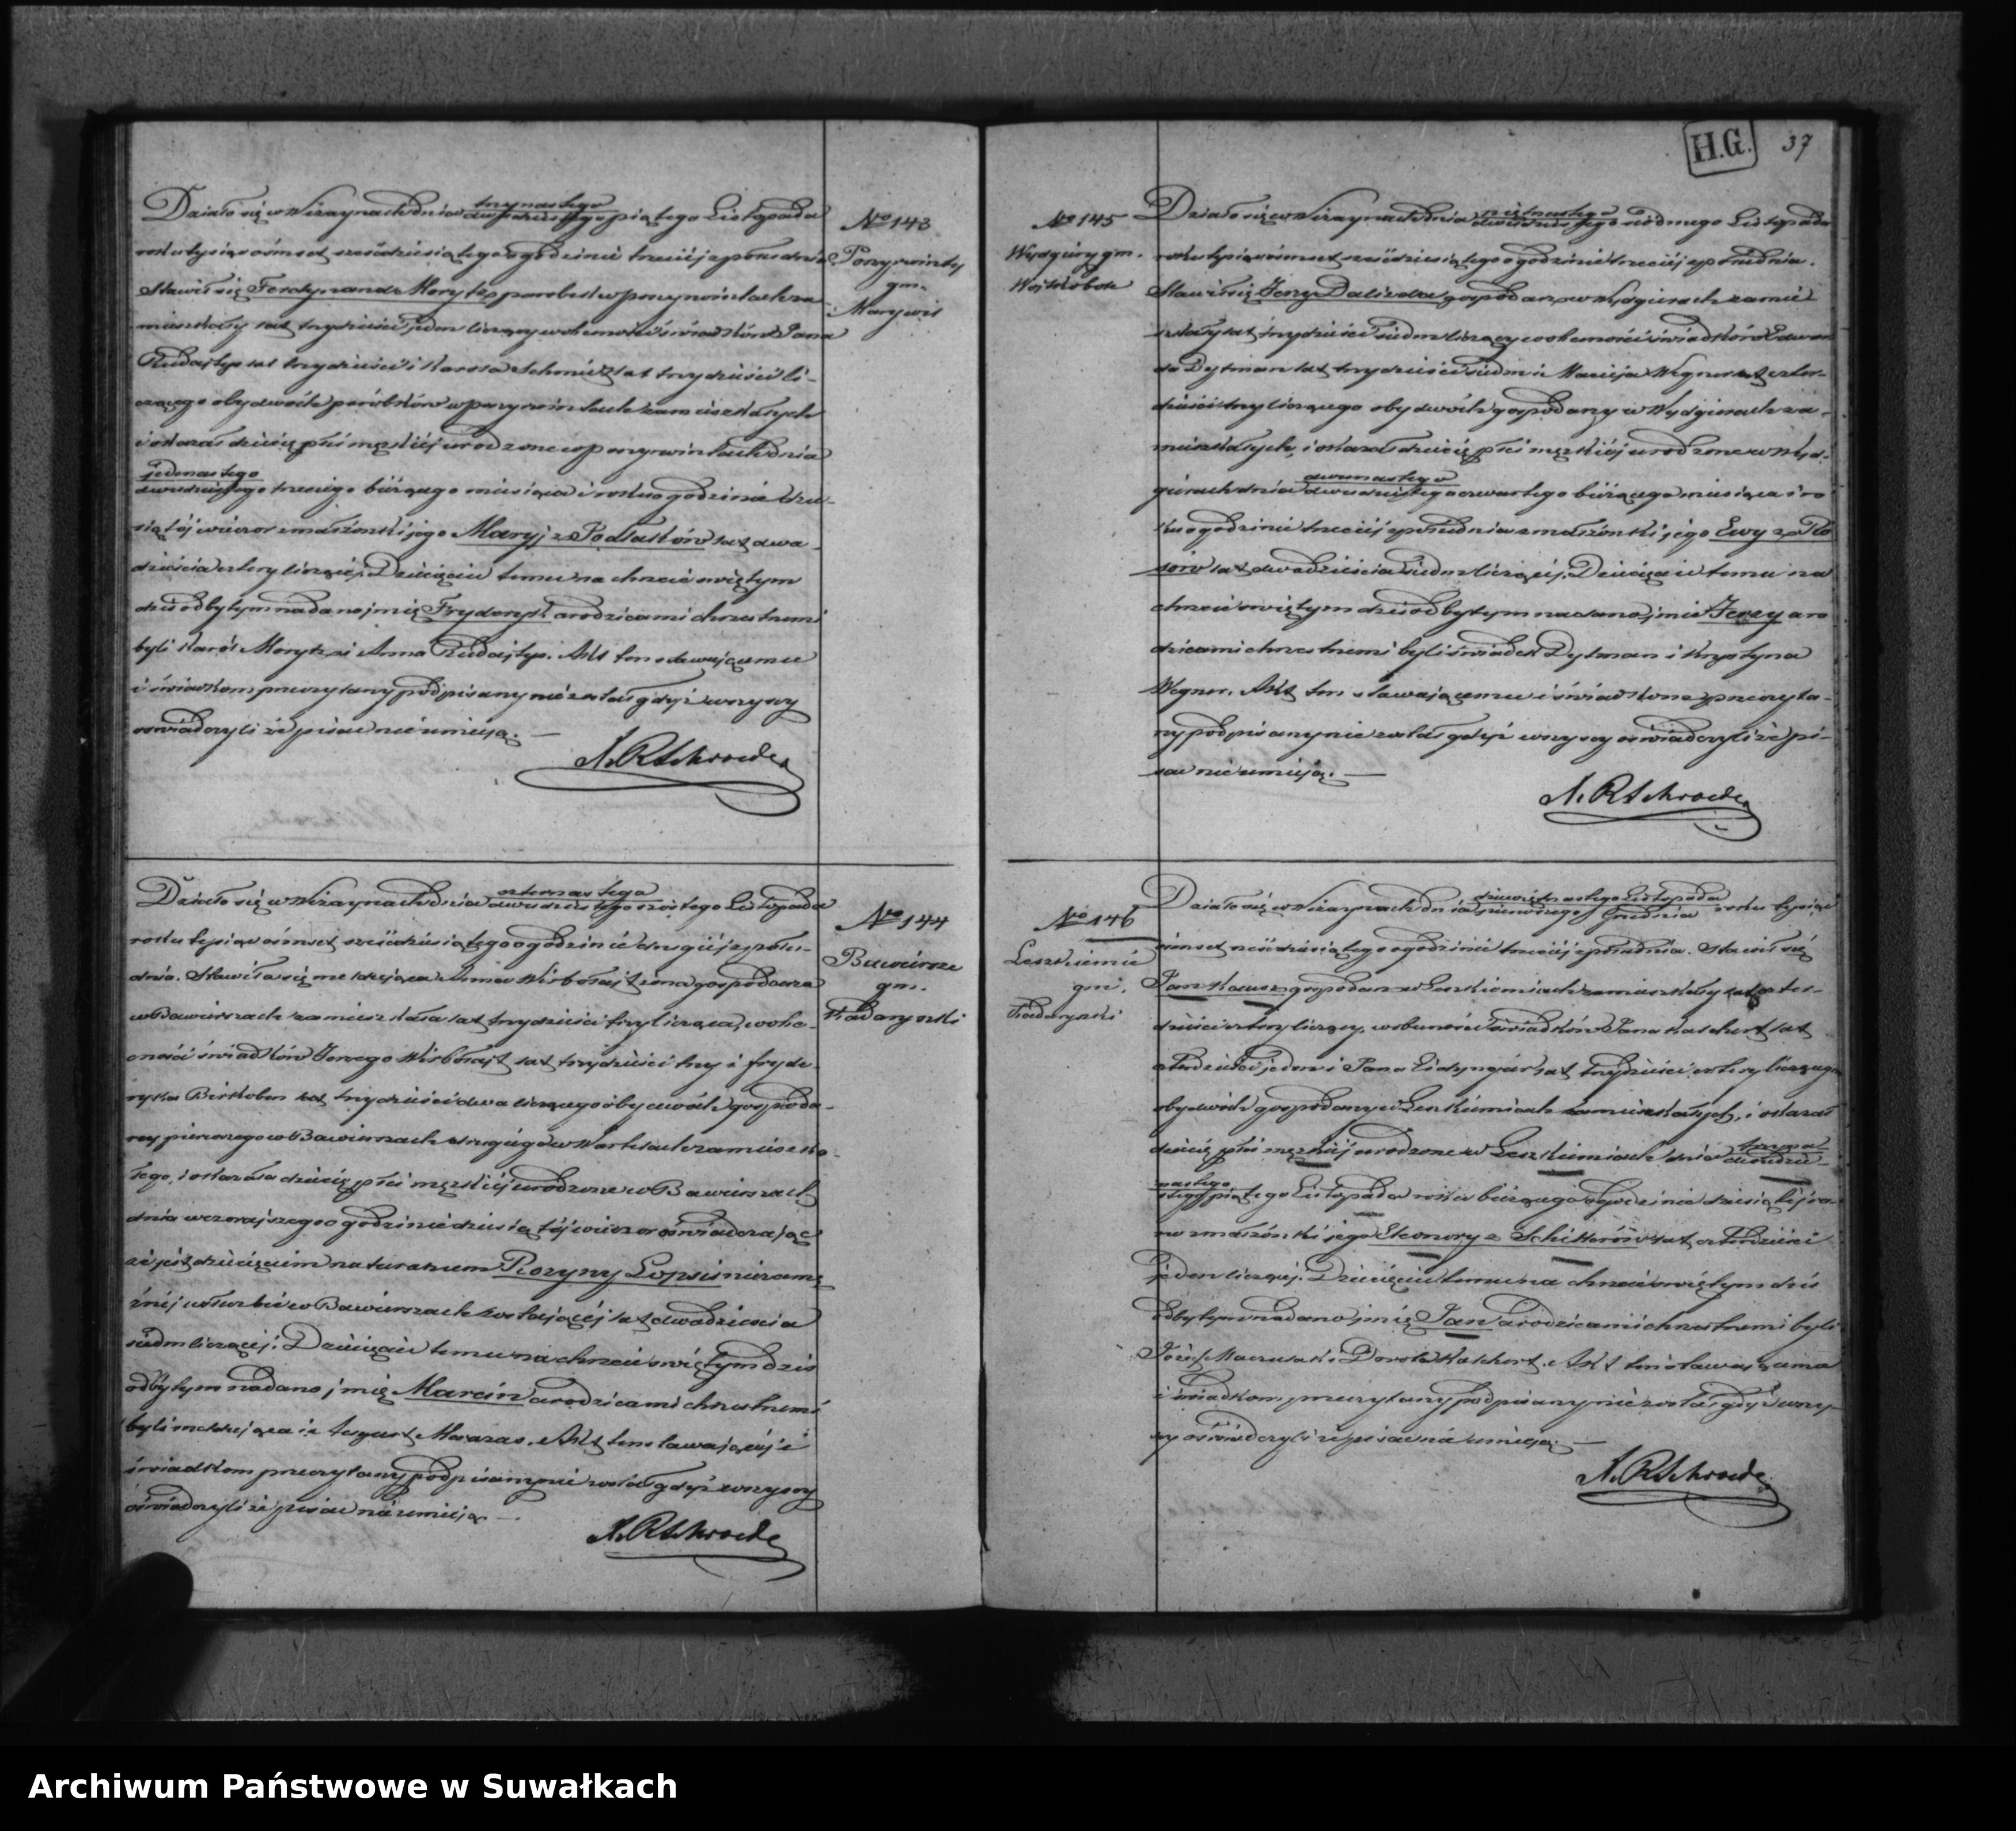 Działo się w Wiżaynach dnia trzynastego / dwudziestego piątego Listopada
roku tysiąc ośmset sześćdziesiątego o godzinie trzeciej z południa
Stawił się Ferdynand Moryt parobek w Ponyrwintach za-
mieszkały lat trzydzieści jeden liczący w obecności świadków Jana
Rudajtys lat trzydzieści i Karola Schmidt lat trzydzieści li-
czącego obydwóch parobków w Ponyrwintach zamieszkałych
i okazał dziécię płci męzkiéj urodzone w Ponyrwintach dnia
jedenastego / dwudziestego trzeciego bieżącego miesiąca i roku o godzinie dzie-
siątéj wieczor z małżonki jego Maryj z Podlaków lat dwa-
dzieścia cztery liczącéj. Dziécięciu temu na chrzcie świętym
dziś odbytym nadano jmię Fryderyk a rodzicami chrzestnemi
byli Karól Moryt i Anna Rudajtys. Akt ten stawającemu
i świadkom przeczytany podpisany nie został gdyż wszyscy
oświadczyli że pisać nie umieją. —
A. R. Schroeder
No 143
Ponyrwinty
gm.
Marywil
Działo się w Wiżaynach dnia czternastego / dwudziestego szóstego Listopada
roku tysiąc ośmset sześćdziesiątego o godzinie drugiéj z połu-
dnia. Stawiła się Anna Wisborajt żona gospodarza
w Bawierszach zamieszkała lat trzydzieści trzy licząca, w obe-
cności świadków Jerzego Wisborajt lat trzydzieści trzy i Fryde-
ryka Birkoben lat trzydzieści dwa liczącego obydwóch gospoda-
rzy pierwszego w Bawierszach drugiego w zamieszka-
łego, i okazała dziécię płci męzkiéj urodzone w Bawierszach
dnia wczorajszego o godzinie dziesiątéj wieczor oświadczając
że jest dziecięciem naturalnem Rozyny Lopsis niezamę-
żnéj w służbie w Bawierszach zostającéj lat dwadzieścia
siedm liczącéj. Dziécięciu temu na chrzcie świętym dziś
odbytym nadano jmię Marcin a rodzicami chrzestnemi
byli i August Mazas. Akt ten stawającéj i
świadkom przeczytany podpisany nie został gdyż wszyscy
oświadczyli że pisać nie umieją. —
A. R. Schroeder
No 144
Bawiersze
gm.
Kadaryszki
H.G. 37
No 145
Wysgiúry gm.
Wojtkobole
Działo się w Wiżaynach dnia piętnastego / dwudziestego siódmego Listopada
roku tysiąc ośmset sześćdziesiątego o godzinie trzeciéj z południa.
Stawił się Jerzy Daliøda gospodarz w Wysgiurach zamie-
szkały lat trzydzieści siedm liczący w obecności świadków Edwar-
da Dytman lat trzydzieści siedm i Macieja Wegner lat czter-
dzieści trzy liczącego obydwóch gospodarzy w Wysgiurach za-
mieszkałych, i okazał dziécię płci męzkiéj urodzone w Wys-
giurach dnia dwunastego / dwudziestego czwartego bieżącego miesiąca i ro-
ku o godzinie trzeciéj z południa z małżonki jego Ewy z Plo-
sów lat dwadzieścia siedm liczącéj. Dziécięciu temu na
chrzcie świętym dziś odbytym nadano jmie Jerzy a ro-
dzicami chrzestnemi byli świadek Dytman i Krystyna
Wegner. Akt ten stawającemu i świadkom przeczyta-
ny podpisany nie został gdyż wszyscy oświadczyli że pi-
sać nie umieją. —
A. R. Schroeder
No 146
Leszkiemie
gmi.
Kadaryszki
Działo się w Wiżaynach dnia dziewiętnastego Listopada / pierwszego Grudnia roku tysiąc
ośmset sześćdziesiątego o godzinie trzeciéj z południa. Stawił się
Jan Kausz gospodarz w Leszkiemiach zamieszkały lat czter-
dzieści cztery liczący, w obecności świadków Jana Kaschert lat
czterdzieści jeden i Jana lat trzydzieści cztery liczącego
obydwóch gospodarzy w Leszkiemiach zamieszkałych, i okazał
dziécię płci męzkiéj urodzone w Leszkiemiach dnia trzyna- / dwudzie-
nastego / stego piątego Listopada roku bieżącego o godzinie dziesiątéj z ra-
na z małżonki jego Eleonory z Schikkorów lat czterdzieści
jeden liczącéj. Dziécięciu temu na chrzcie świętym dziś
odbytym nadano jmię Jan a rodzicami chrzestnemi byli
Józef Maczulak i Dorota Kaschert. Akt ten stawającemu
i świadkom przeczytany podpisany nie został gdyż wszy-
scy oświadczyli że pisać nie umieją. —
A. R. Schroeder
Archiwum Państwowe w Suwałkach